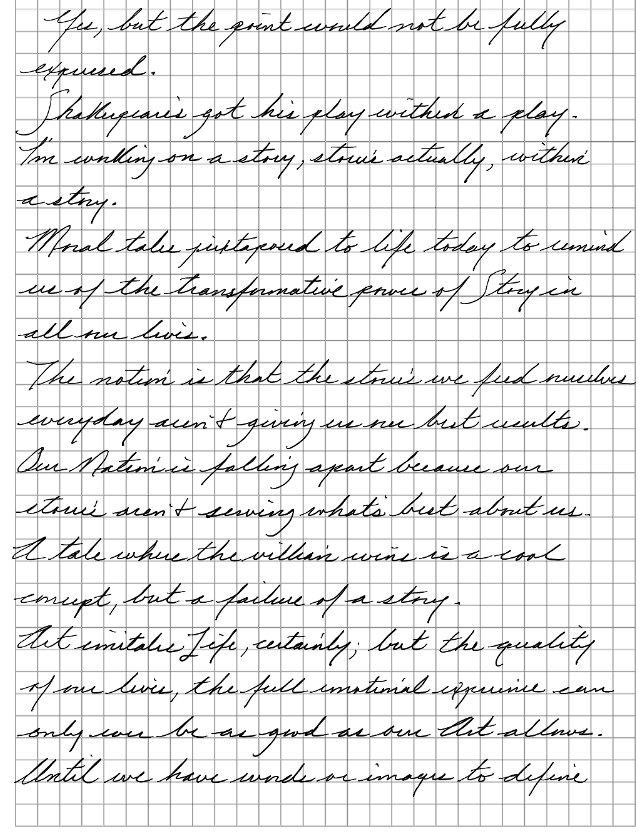 Yes, but the point would not be fully
expressed.
Shakespeare's got his play within a play.
I'm working on a story, stories actually, within
a story.
Moral tales juxtaposed to life today to remind
us of the transformative power of Story in
all our lives.
The notion is that the stories we feed ourselves
everyday aren't giving us our best results.
Our Nation is falling apart because our
stories aren't serving what's best about us.
A tale where the villian wins is a cool
concept, but a failure of a story.
Art imitates Life, certainly; but the quality
of our lives, the full emotional experience can
only ever be as good as our Art allows.
Until we have words or images to define